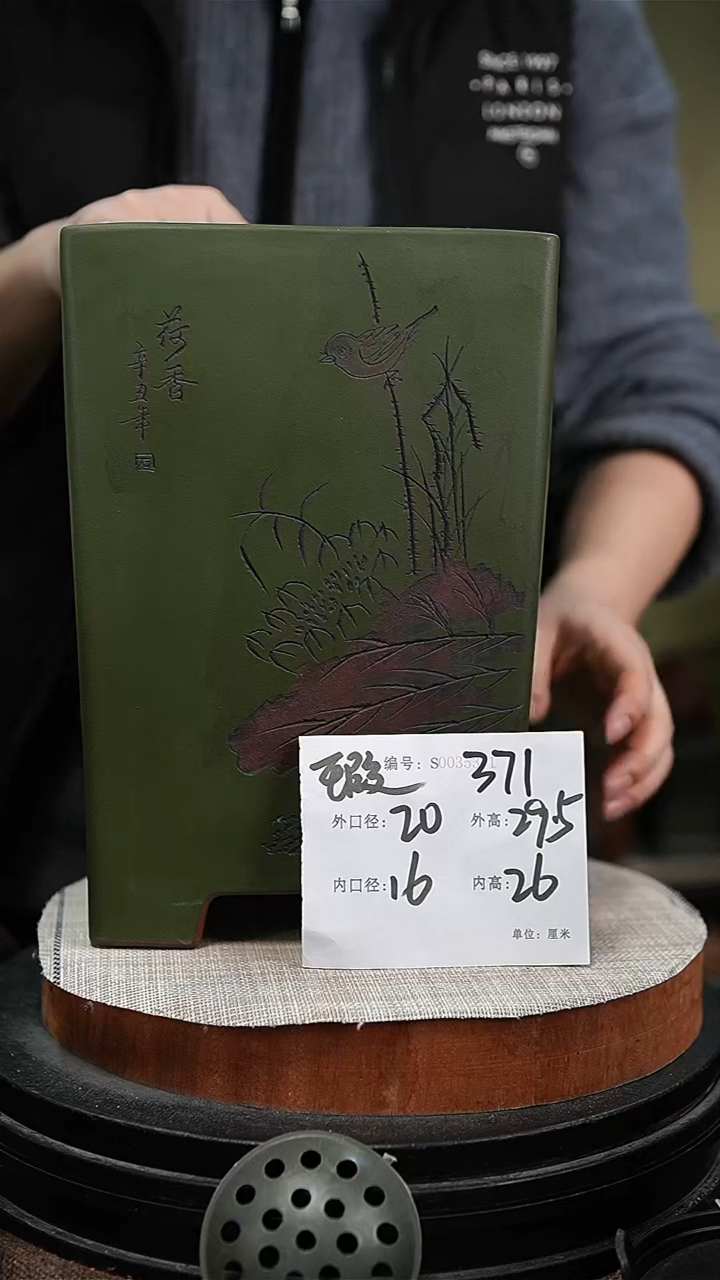 SINCE 1997
PARIS
LONDON
荷香
辛丑年
瑕 编号: S0035371 371
外口径: 20 外高: 29.5
内口径: 16 内高: 26
单位: 厘米